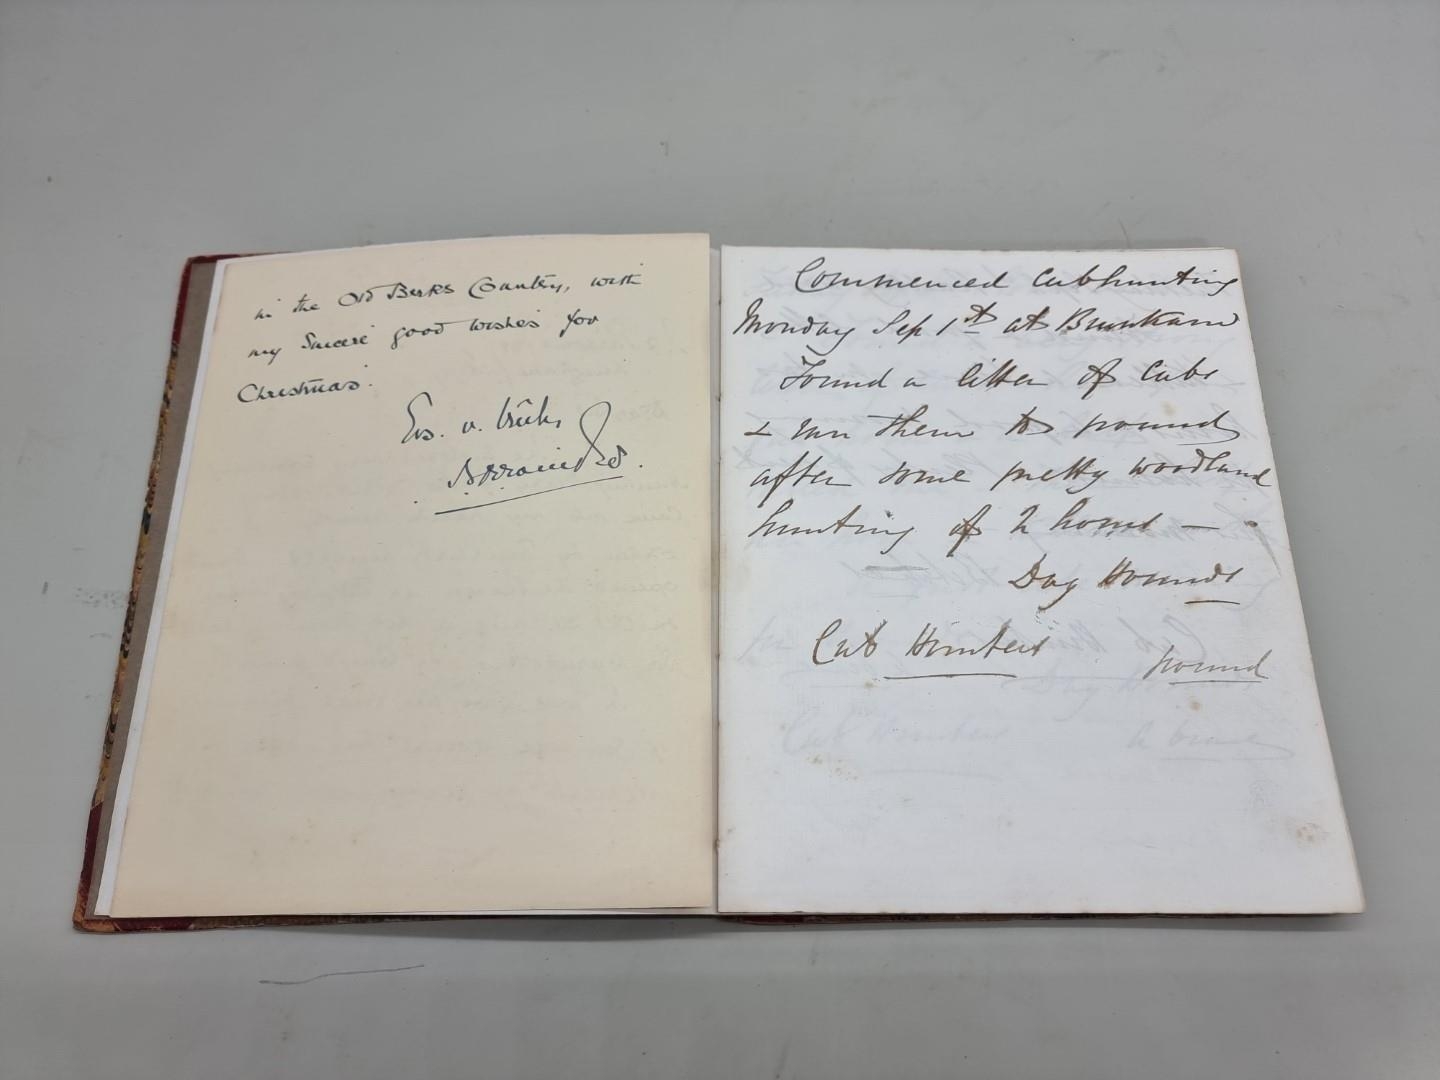 in the Old Berks Country, with
my Sincere good wishes for
Christmas.
Commenced Cubhunting
Monday Sep 1st at
Found a litter of Cubs
& run them to ground
after some pretty woodland
hunting of 2 hours —
Dog Hounds
Cub Hunters ground